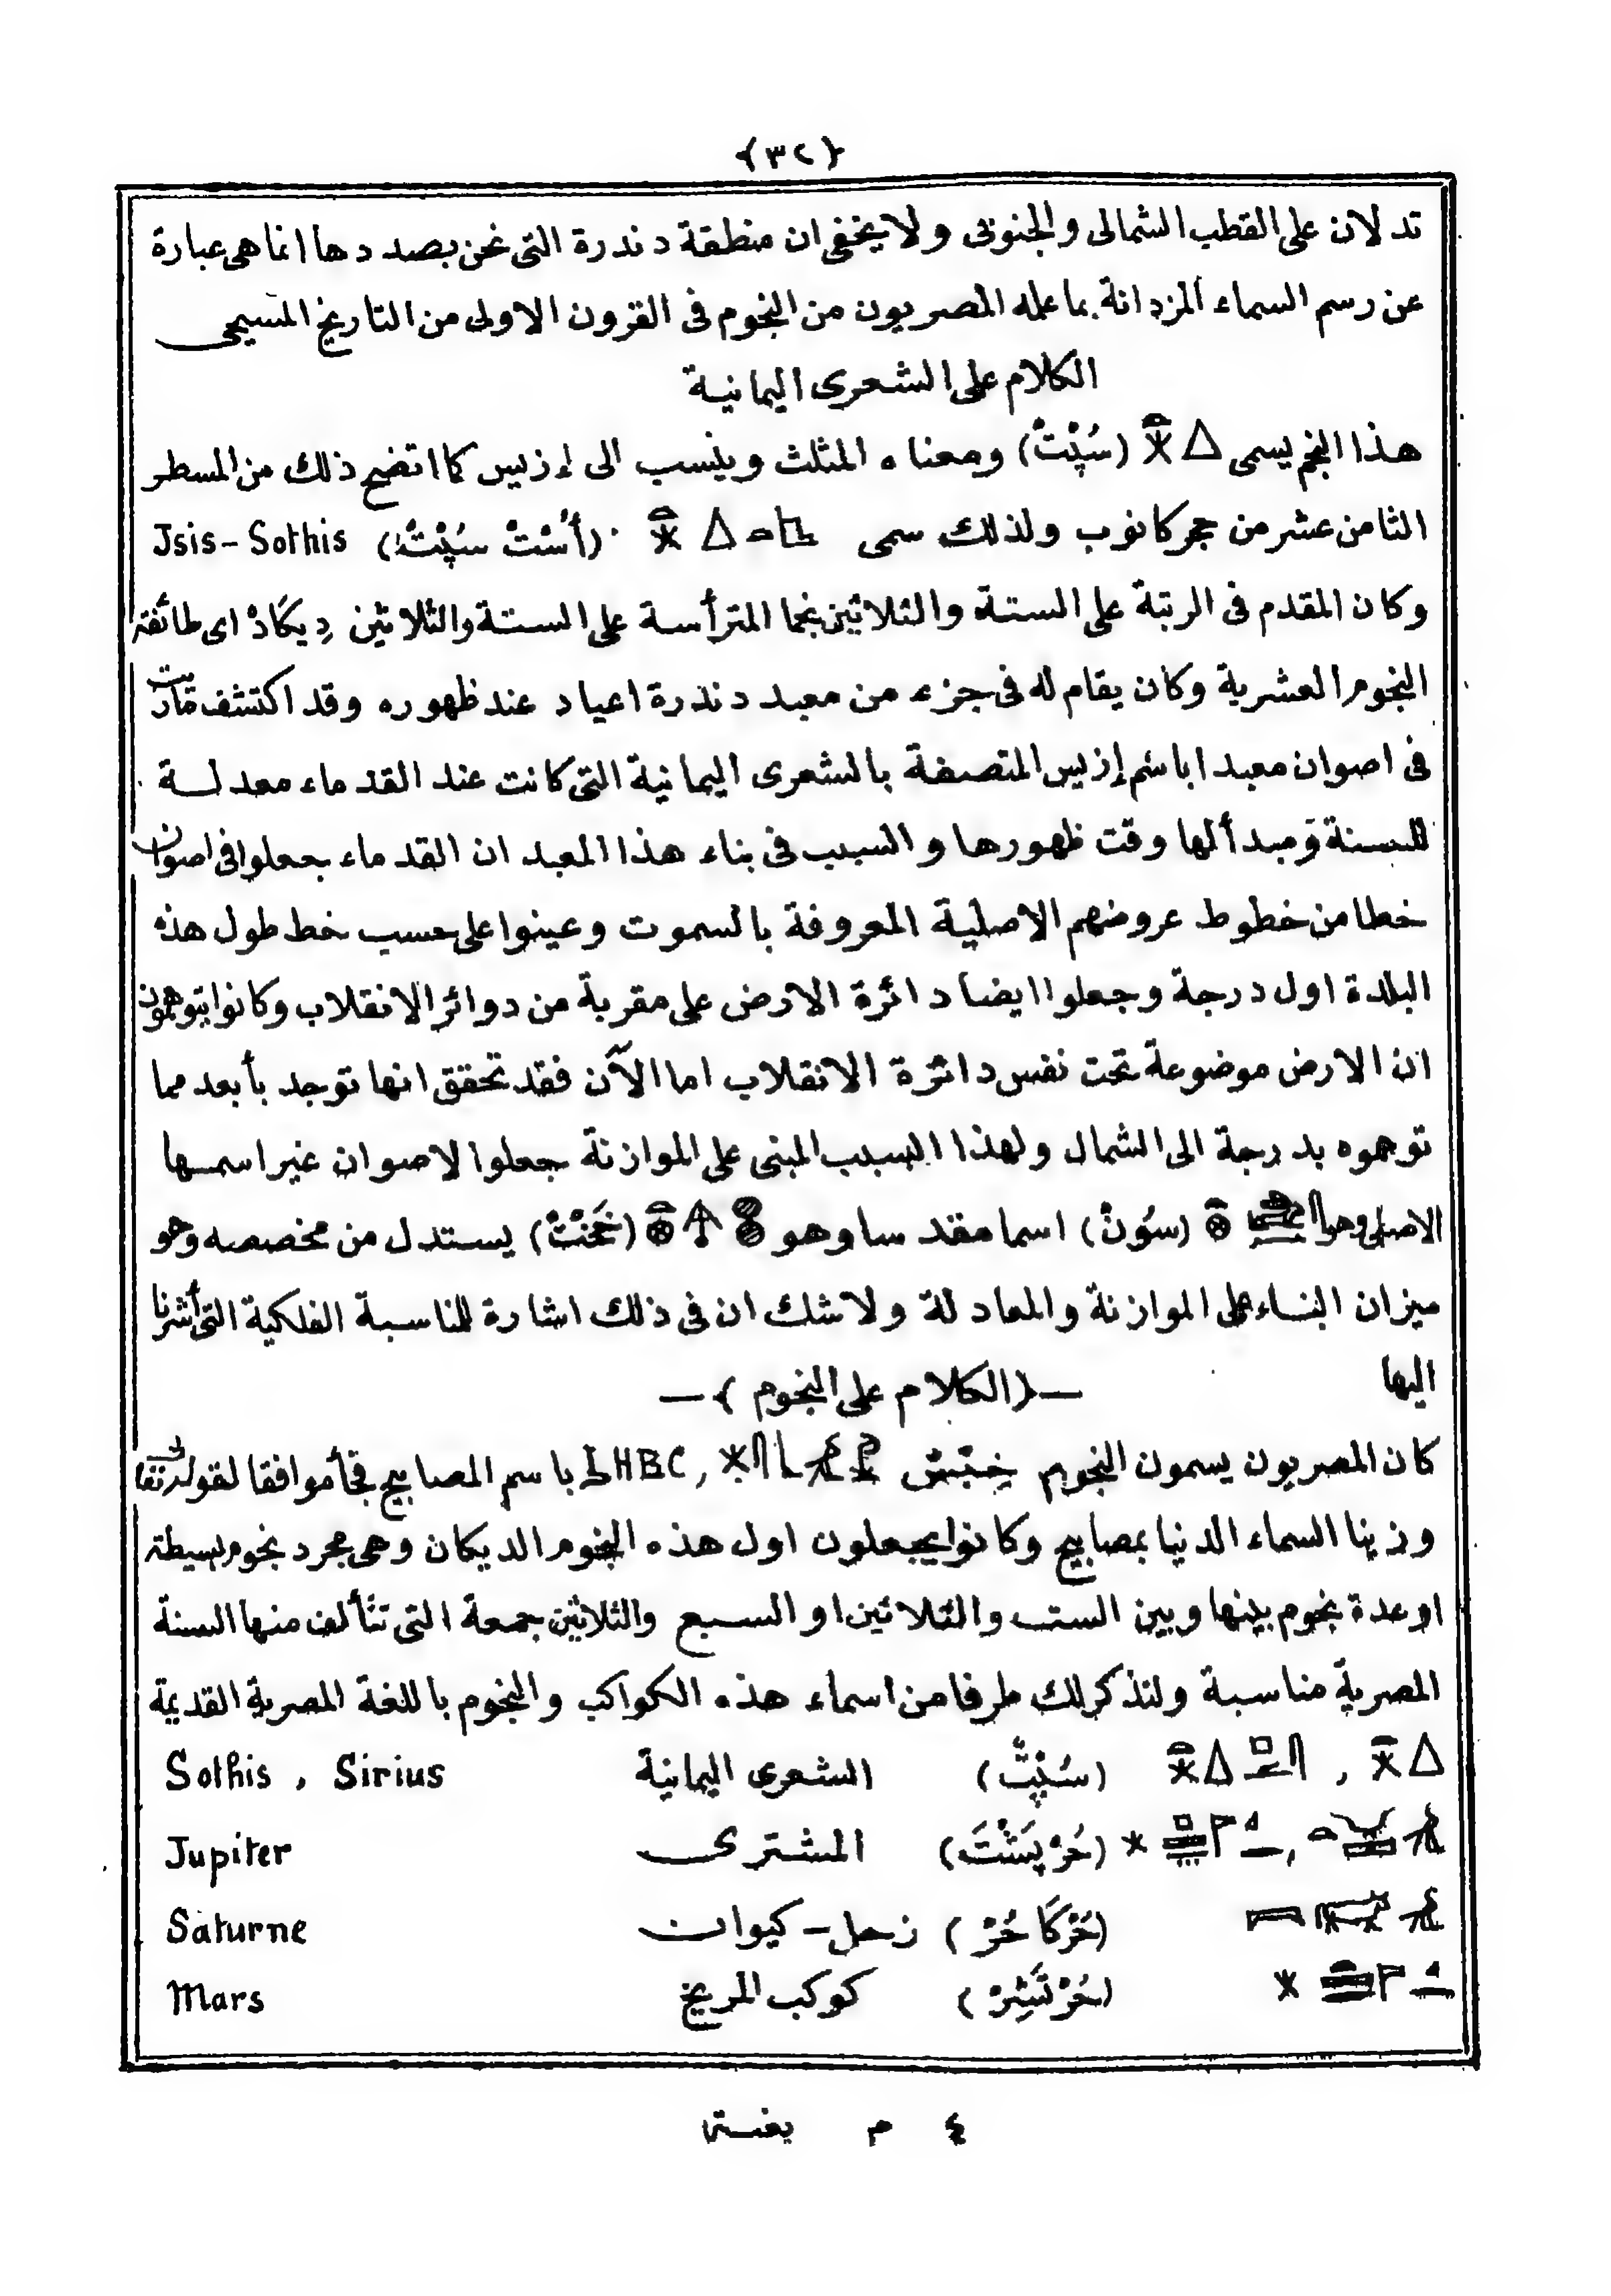 {٣٢}
تدلان على القطب الشمالى والجنوبى ولا يخفى ان منطقة دندرة التى نحن بصددها انما هى عبارة
عن رسم السماء المزدانة بما عمله المصريون من النجوم فى القرون الاولى من التاريخ المسيحى
الكلام على الشعرى اليمانية
هذا النجم يسمى (سُپْتْ) ومعناه المثلث وينسب الى إزيس كما اتضح ذلك من السطر
الثامن عشر من حجر كانوب ولذلك سمى (أُسْتْ سُپْتْ) Jsis-Sothis
وكان المقدم فى الرتبة على الستة والثلاثين نجما المترأسة على الستة والثلاثين دِيكَادْ اى طائفة
النجوم العشرية وكان يقام له فى جزء من معبد دندرة اعياد عند ظهوره وقد اكتشف مارييت
فى اصوان معبدا باسم إزيس المتصفة بالشعرى اليمانية التى كانت عند القدماء معدلة
للسنة ومبدأ لها وقت ظهورها والسبب فى بناء هذا المعبد ان القدماء جعلوا فى اصوان
خطا من خطوط عروضهم الاصلية المعروفة بالسموت وعينوا على حسب خط طول هذه
البلدة اول درجة وجعلوا ايضا دائرة الارض على مقربة من دوائر الانقلاب وكانوا يتوهمون
ان الارض موضوعة تحت نفس دائرة الانقلاب اما الآن فقد تحقق انها توجد بأبعد مما
توهموه بدرجة الى الشمال ولهذا السبب المبنى على الموازنة جعلوا لاصوان غير اسمها
الاصلى وهو (سُونْ) اسما مقدسا وهو (خَنْتْ) يستدل من مخصصه وهو
ميزان البناء على الموازنة والمعادلة ولا شك ان فى ذلك اشارة للمناسبة الفلكية التى أشرنا
اليها
—{الكلام على النجوم}—
كان المصريون يسمون النجوم خِبْسْ باسم المصابيح فجأ موافقا لقوله تعالى
وزينا السماء الدنيا بمصابيح وكانوا يجعلون اول هذه النجوم الديكان وهى مجرد نجوم بسيطة
او عدة نجوم بينها وبين الست والثلاثين او السبع والثلاثين جمعة التى تتألف منها السنة
المصرية مناسبة ولنذكر لك طرفا من اسماء هذه الكواكب والنجوم باللغة المصرية القديمة
(سُپْتْ) الشعرى اليمانية Sothis , Sirius
(حُرْ پِشْتَ) المشترى Jupiter
(حُرْ كَا حُرْ) زحل - كيوان Saturne
(حُرْ تَشِرْ) كوكب المريخ Mars
٤ م